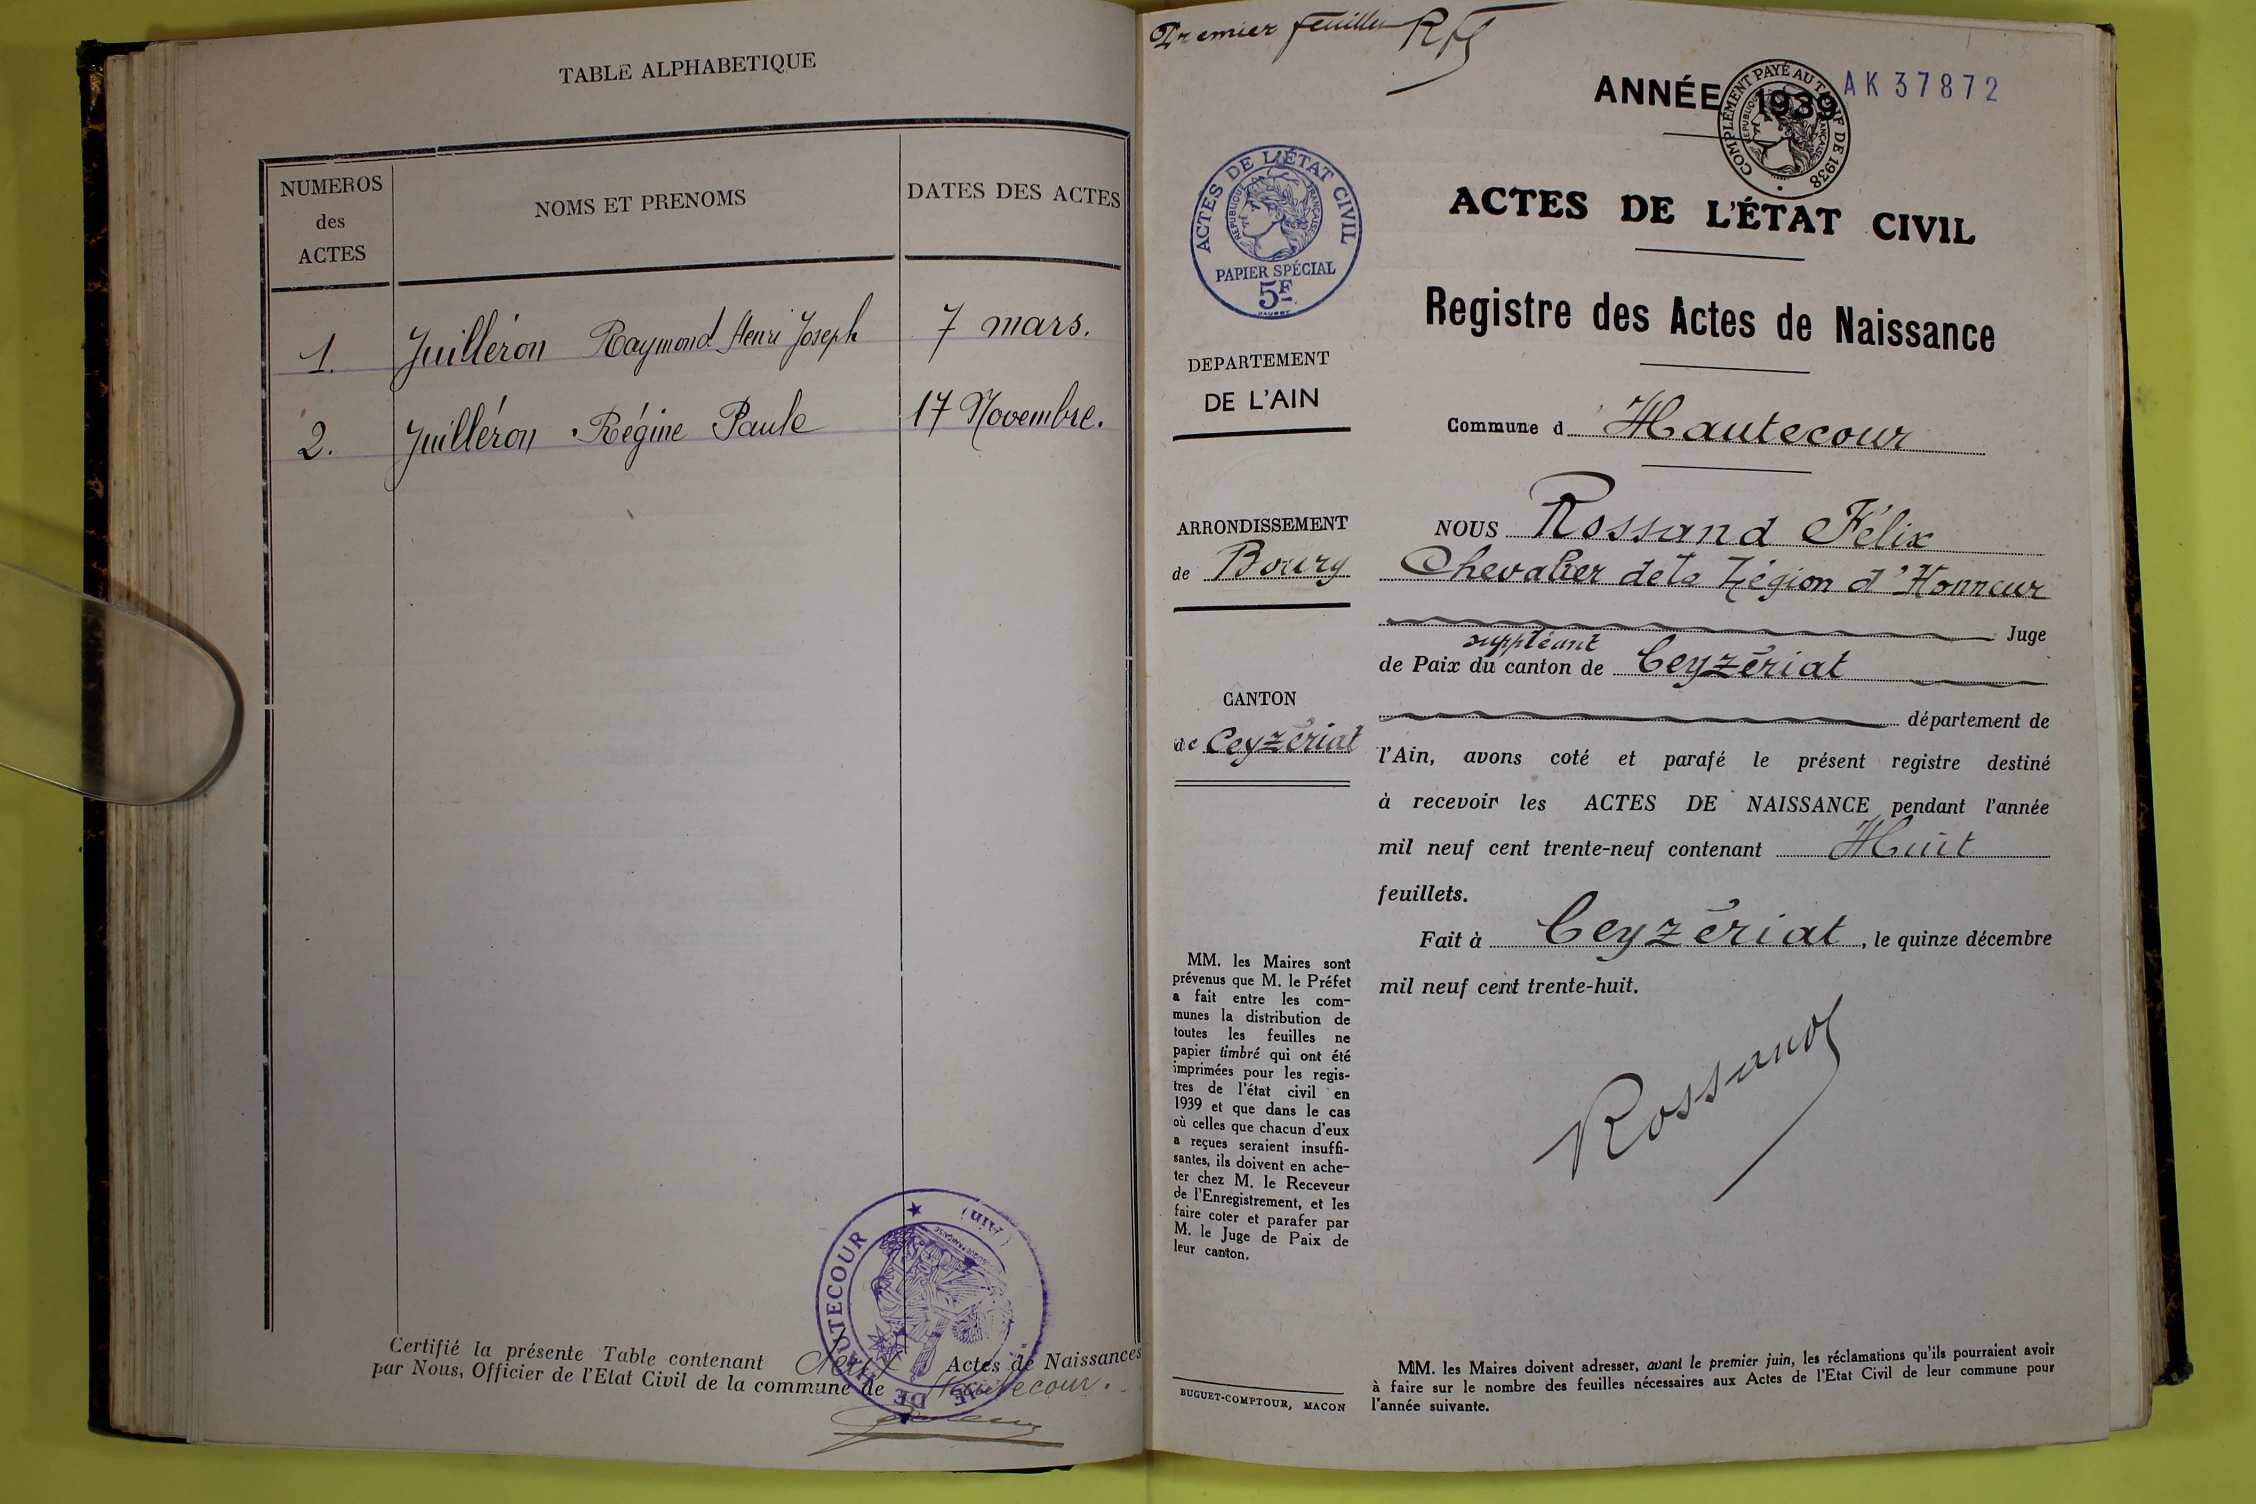 TABLE ALPHABETIQUE
NUMEROS
des
ACTES
NOMS ET PRENOMS
DATES DES ACTES
1. Juilléron Raymond Henri Joseph 7 mars.
2. Juilléron Régine Paule 17 Novembre.
Certifié la présente Table contenant Actes de Naissances
par Nous, Officier de l'Etat Civil de la commune de Hautecour.
DE HAUTECOUR ★ (Ain)
Premier feuillet
ANNÉE 1939
COMPLÉMENT PAYÉ AU TARIF DE 1938
RÉPUBLIQUE FRANÇAISE
AK 37872
ACTES DE L'ÉTAT CIVIL
RÉPUBLIQUE FRANÇAISE
PAPIER SPÉCIAL
5F
ACTES DE L'ÉTAT CIVIL
Registre des Actes de Naissance
DEPARTEMENT
DE L'AIN
Commune d Hautecour
ARRONDISSEMENT
de Bourg
CANTON
de Ceyzériat
NOUS Rossand Félix
Chevalier de la Légion d'Honneur
Juge
suppléant
de Paix du canton de Ceyzériat
département de
l'Ain, avons coté et parafé le présent registre destiné
à recevoir les ACTES DE NAISSANCE pendant l'année
mil neuf cent trente-neuf contenant Huit
feuillets.
Fait à Ceyzériat, le quinze décembre
mil neuf cent trente-huit.
Rossand
MM. les Maires sont
prévenus que M. le Préfet
a fait entre les com-
munes la distribution de
toutes les feuilles ne
papier timbré qui ont été
imprimées pour les regis-
tres de l'état civil en
1939 et que dans le cas
où celles que chacun d'eux
a reçues seraient insuffi-
santes, ils doivent en ache-
ter chez M. le Receveur
de l'Enregistrement, et les
faire coter et parafer par
M. le Juge de Paix de
leur canton.
BUGUET-COMPTOUR, MACON
MM. les Maires doivent adresser, avant le premier juin, les réclamations qu'ils pourraient avoir
à faire sur le nombre des feuilles nécessaires aux Actes de l'Etat Civil de leur commune pour
l'année suivante.